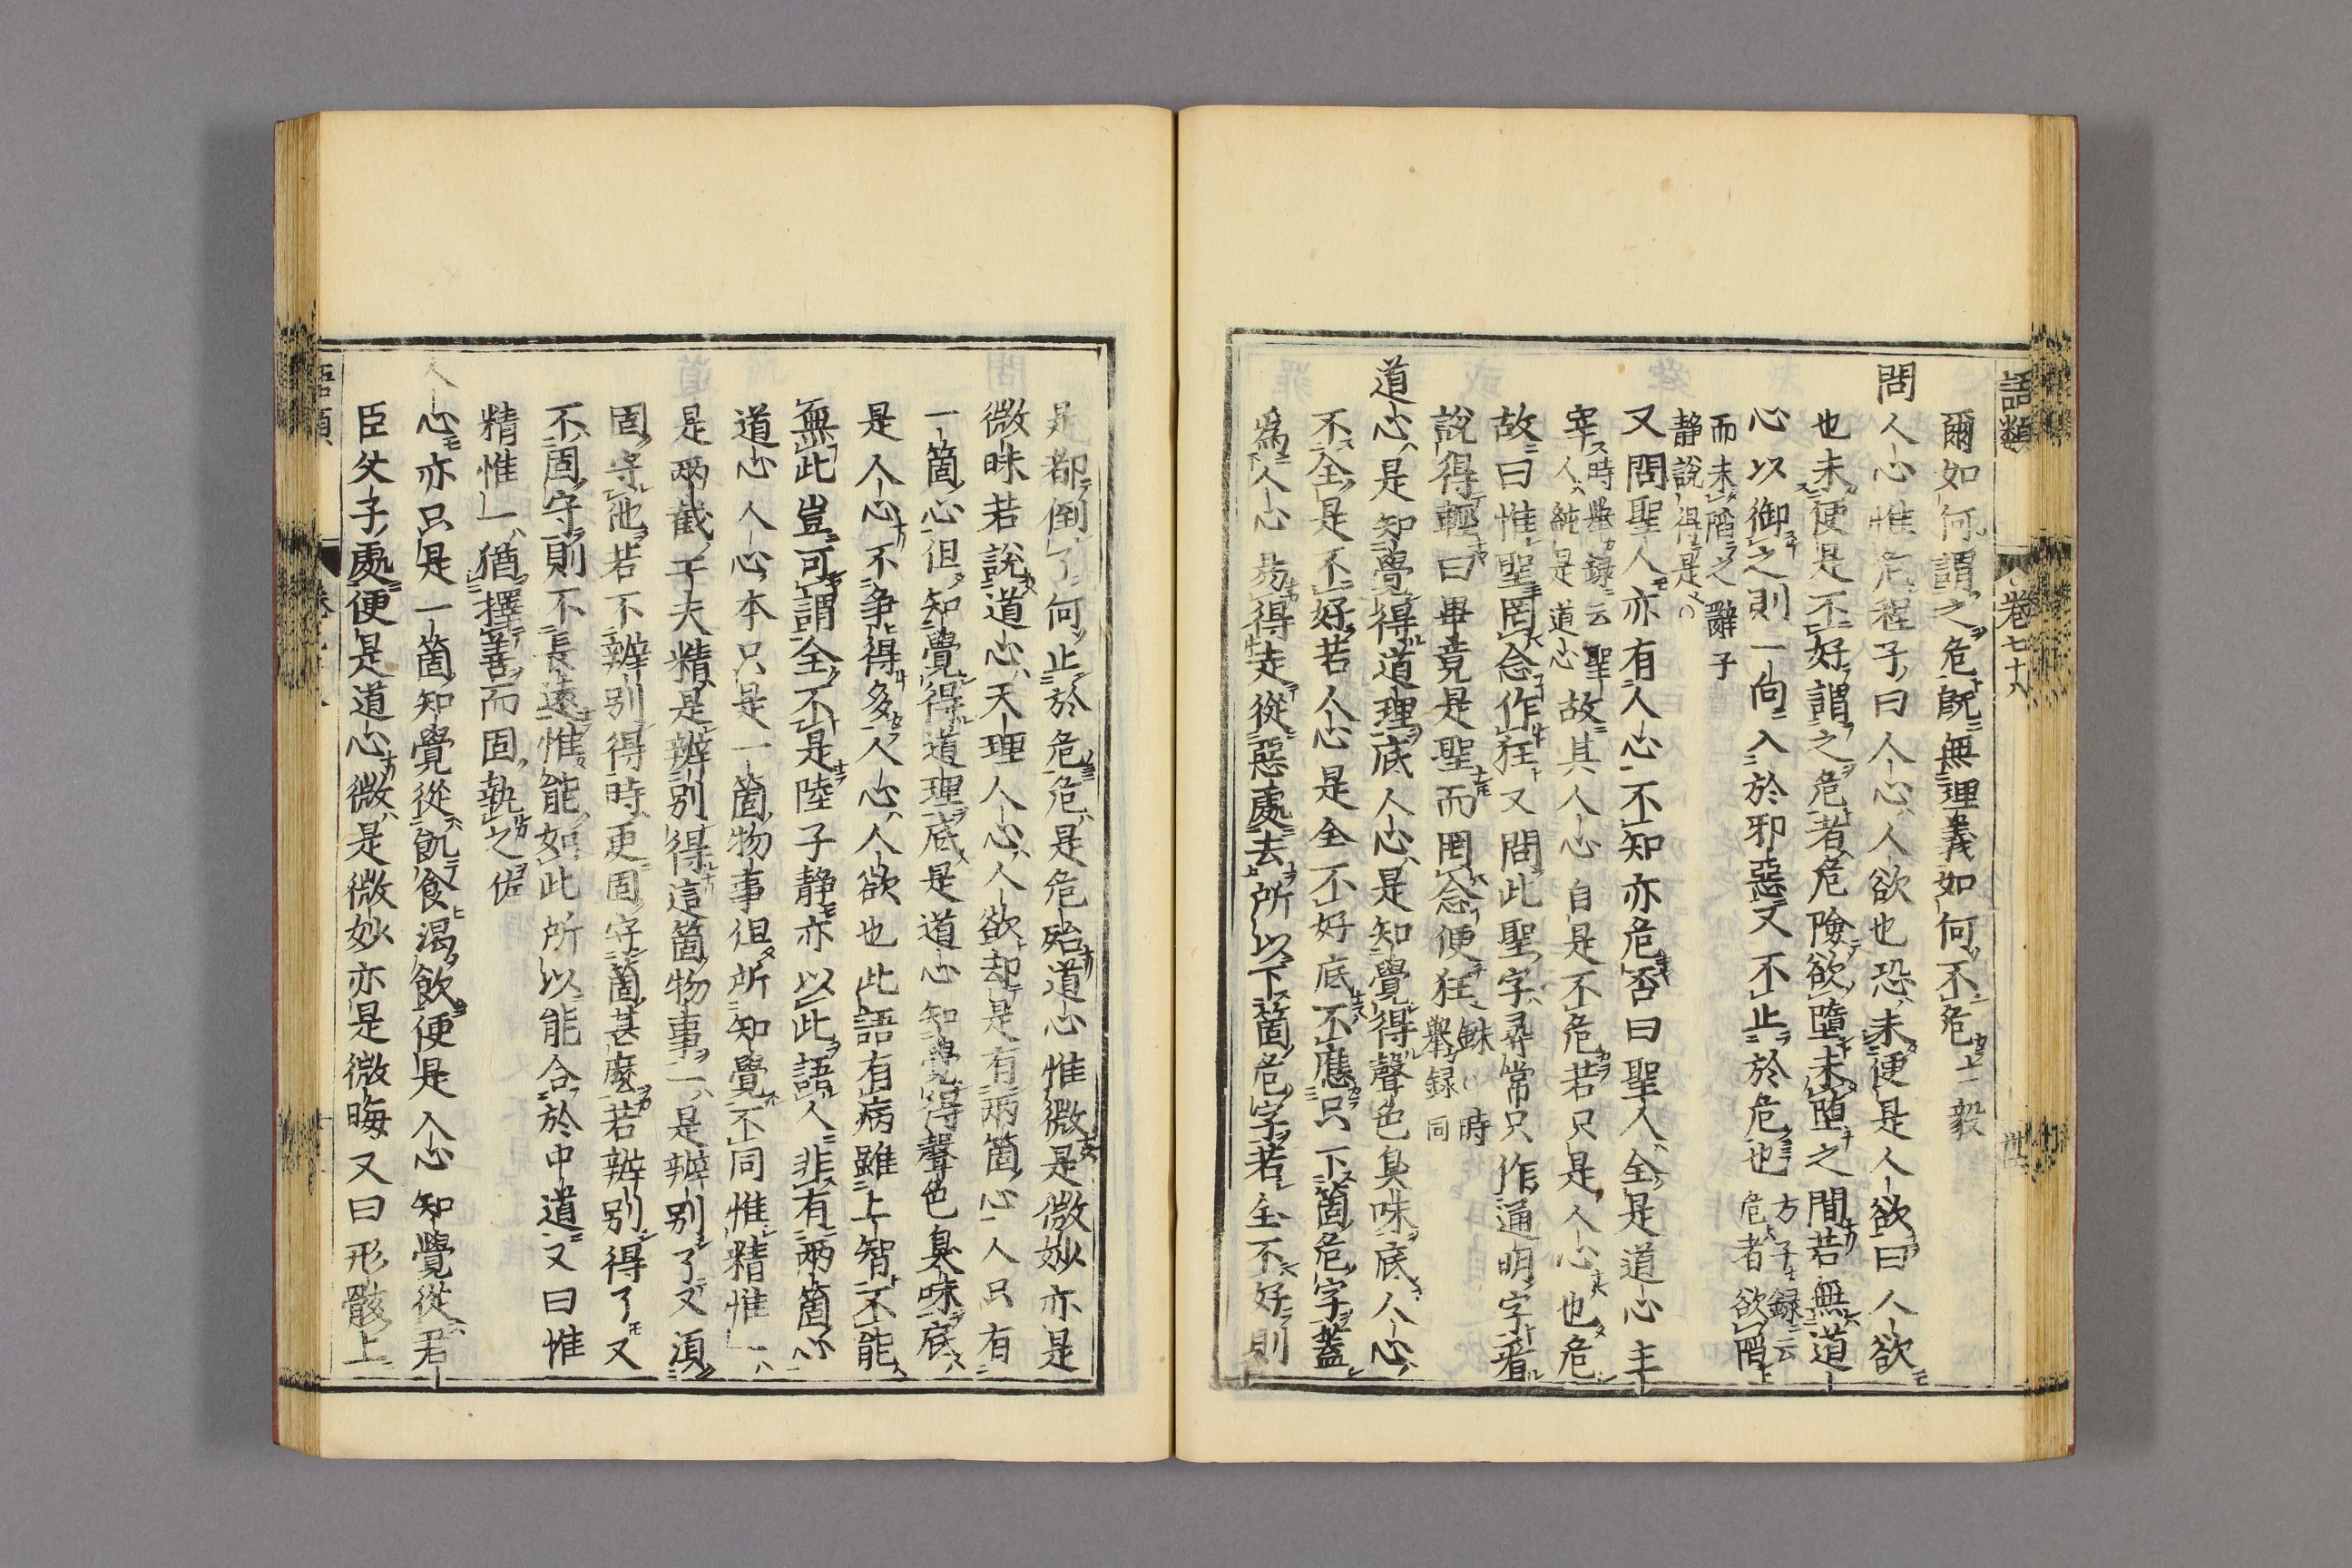 語類 卷七十八 丗
爾如何謂之危既無理義如何不危上毅
問人心惟危程子曰人心人欲也恐未便是人欲曰人欲
也未便是不好謂之危者危險欲墮未墮之間若無道
心以御之則一向入於邪惡又不止於危也方子録云危者欲陷
而未陷之辭子静說得是
又問聖人亦有人心不知亦危否曰聖人全是道心主
宰時舉録云聖人純是道心故其人心自是不危若只是人心也危
故曰惟聖罔念作狂又問此聖字尋常只作通明字看
說得輕曰畢竟是聖而罔念便狂銖時舉録同
道心是知覺得道理底人心是知覺得聲色臭味底人心
不全是不好若人心是全不好底不應只下箇危字蓋
爲人心易得走從惡處去所以下箇危字若全不好則
是都倒了何止於危危是危殆道心惟微是微妙亦是
微昧若說道心天理人心人欲却是有兩箇心人只有
一箇心但知覺得道理底是道心知覺得聲色臭味底
是人心不爭得多人心人欲也此語有病雖上智不能
無此豈可謂全不是陸子静亦以此語人非有兩箇心
道心人心本只是一箇物事但所知覺不同惟精惟一
是兩截子夫精是辨別得這箇物事一是辨別了又湏
固守他若不辨別得時更固守箇甚麼若辨別得了又
不固守則不長遠惟能如此所以能合於中道又曰惟
精惟一猶擇善而固執之佐
人心亦只是一箇知覺從飢食渴飲便是人心知覺從君
臣父子處便是道心微是微妙亦是微晦又曰形骸上
語類